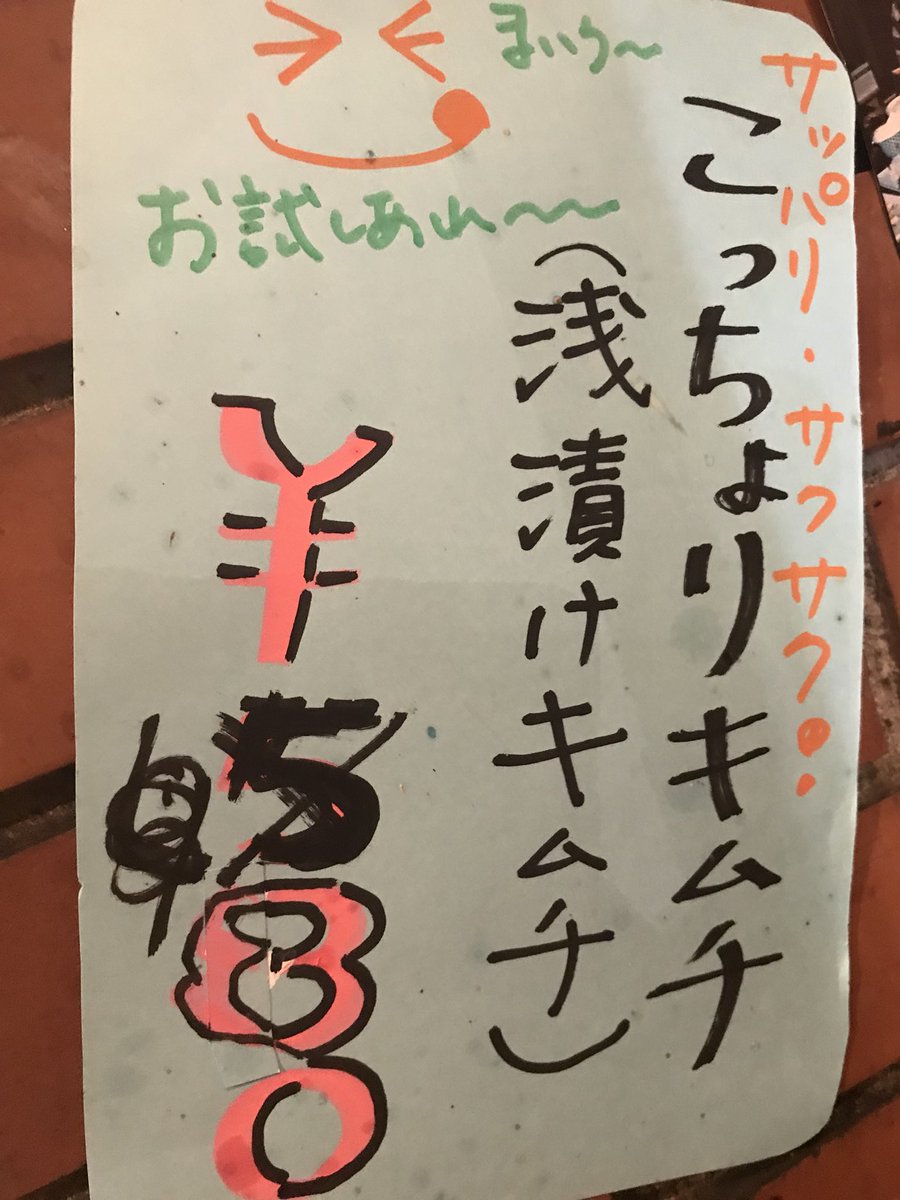 サッパリ・サクサク!!
こっちょりキムチ
(浅漬けキムチ)
まいう〜
お試しあれ〜〜
¥580